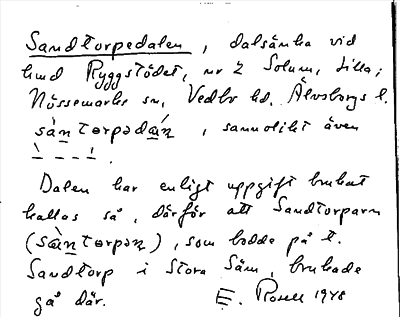 Sandtorpedalen, dalsänka vid
hmd Ryggstödet, nr 2 Solum, Lilla,
Nössemarks sn, Vedbo hd. Älvsborgs l.
sàntərpədàń, sannolikt även
ˋ - - - ˊ.
Dalen har enligt uppgift brukat
kallas så, därför att Sandtorparn
(sàntərpən), som bodde på t.
Sandtorp i Stora Säm, brukade
gå där. E. Rosell 1948